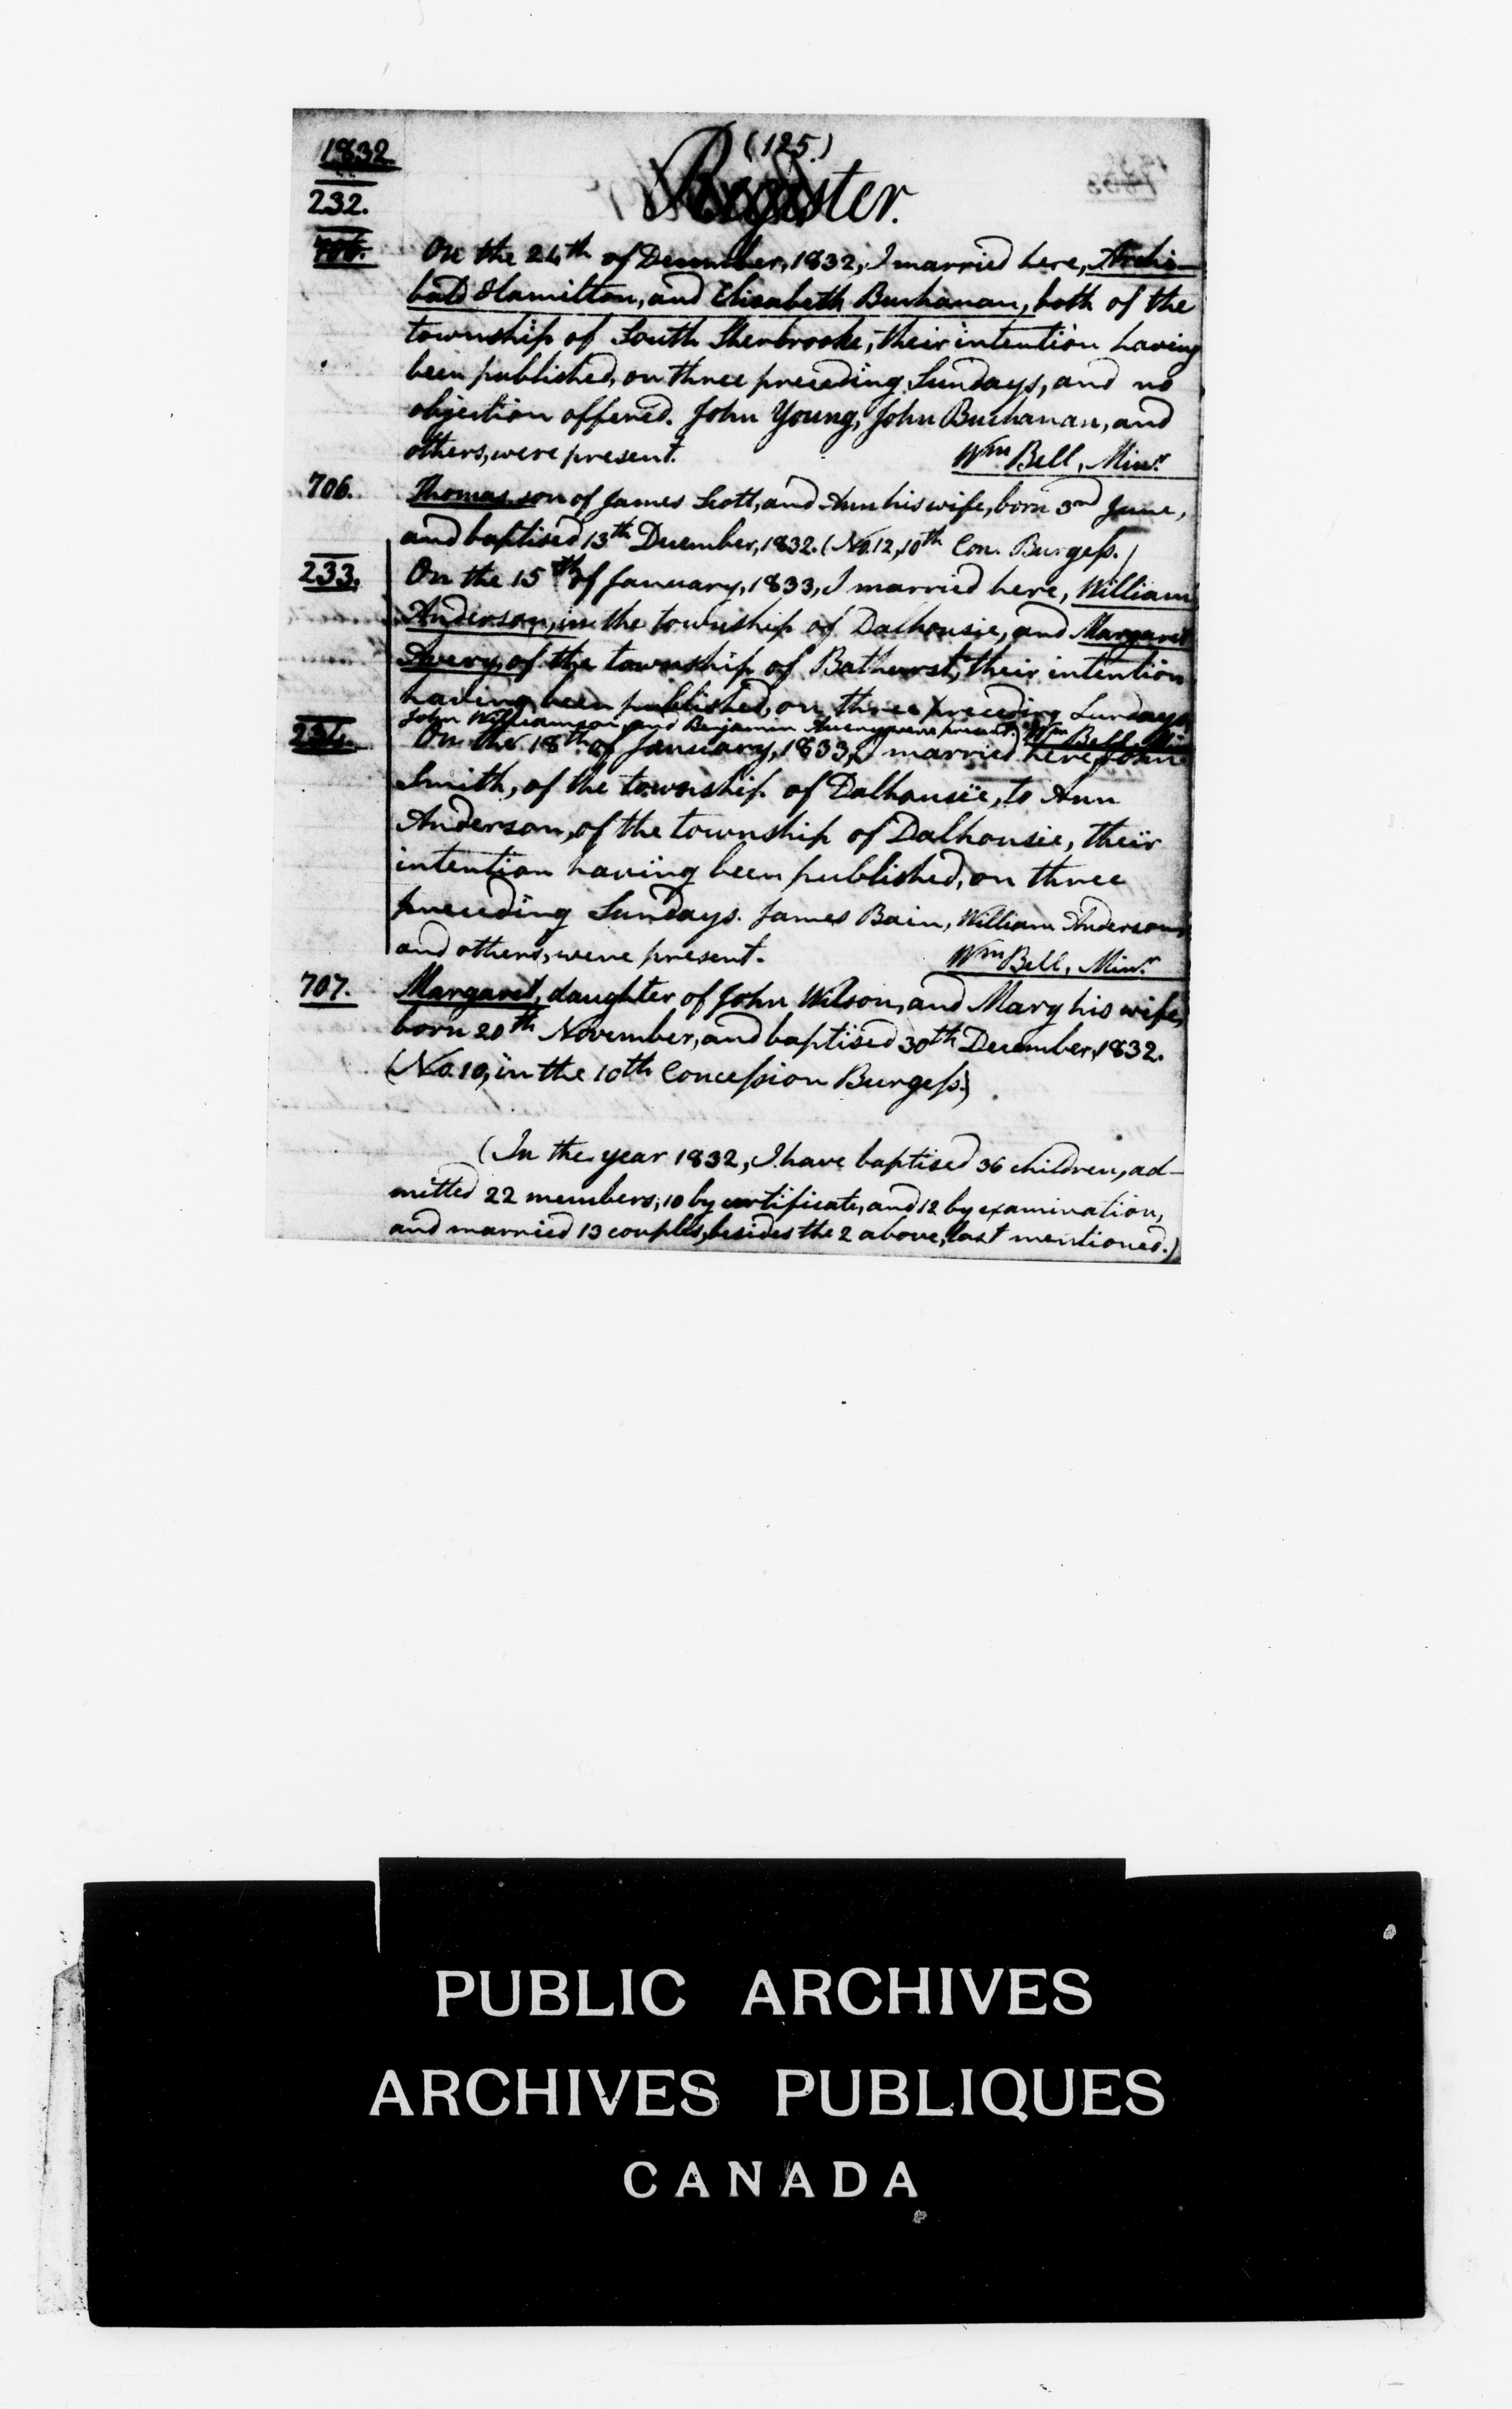 (125.)
1832.
Register.
232.
706.
On the 24th of December, 1832, I married here, Archi-
bald Hamilton, and Elisabeth Buchanan, both of the
township of South Sherbrooke, their intention having
been published, on three preceding Sundays, and no
objection offered. John Young, John Buchanan, and
others, were present.
Wm Bell, Minr.
706.
Thomas, son of James Scott, and Ann his wife, born 3rd June,
and baptised 13th December, 1832. (No. 12, 10th Con. Burgess.)
233.
On the 15th of January, 1833, I married here, William
Anderson, in the township of Dalhousie, and Margaret
Avery, of the township of Bathurst, their intention
having been published, on three preceding Sundays.
John Williamson and Benjamin Avery were present. Wm Bell, Min
234.
On the 18th of January, 1833, I married here, John
Smith, of the township of Dalhousie, to Ann
Anderson, of the township of Dalhousie, their
intention having been published, on three
preceding Sundays. James Bain, William Anderson,
and others, were present.
Wm Bell, Minr.
707.
Margaret, daughter of John Wilson, and Mary his wife,
born 20th November, and baptised 30th December, 1832.
(No. 10, in the 10th Concession Burgess.)
(In the year 1832, I have baptised 36 children, ad-
mitted 22 members; 10 by certificate, and 12 by examination,
and married 13 couples, besides the 2 above, last mentioned.)
PUBLIC ARCHIVES
ARCHIVES PUBLIQUES
CANADA